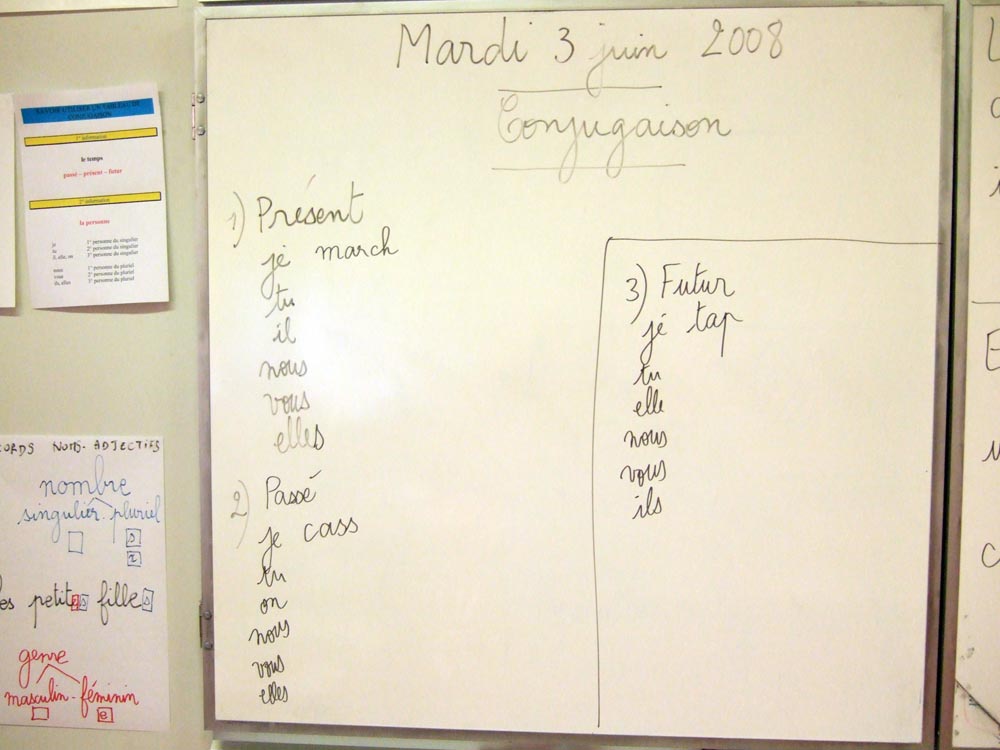 Mardi 3 juin 2008
Conjugaison
1) Présent
je march
tu
il
nous
vous
elles
2) Passé
je cass
tu
on
nous
vous
elles
3) Futur
je tap
tu
elle
nous
vous
ils
SAVOIR UTILISER UN TABLEAU DE
CONJUGAISON
1° information
le temps
passé – présent – futur
2° information
la personne
je 1° personne du singulier
tu 2° personne du singulier
il, elle, on 3° personne du singulier
nous 1° personne du pluriel
vous 2° personne du pluriel
ils, elles 3° personne du pluriel
NOMS - ADJECTIFS
nombre
singulier - pluriel
s
x
petites filles
genre
masculin - féminin
e